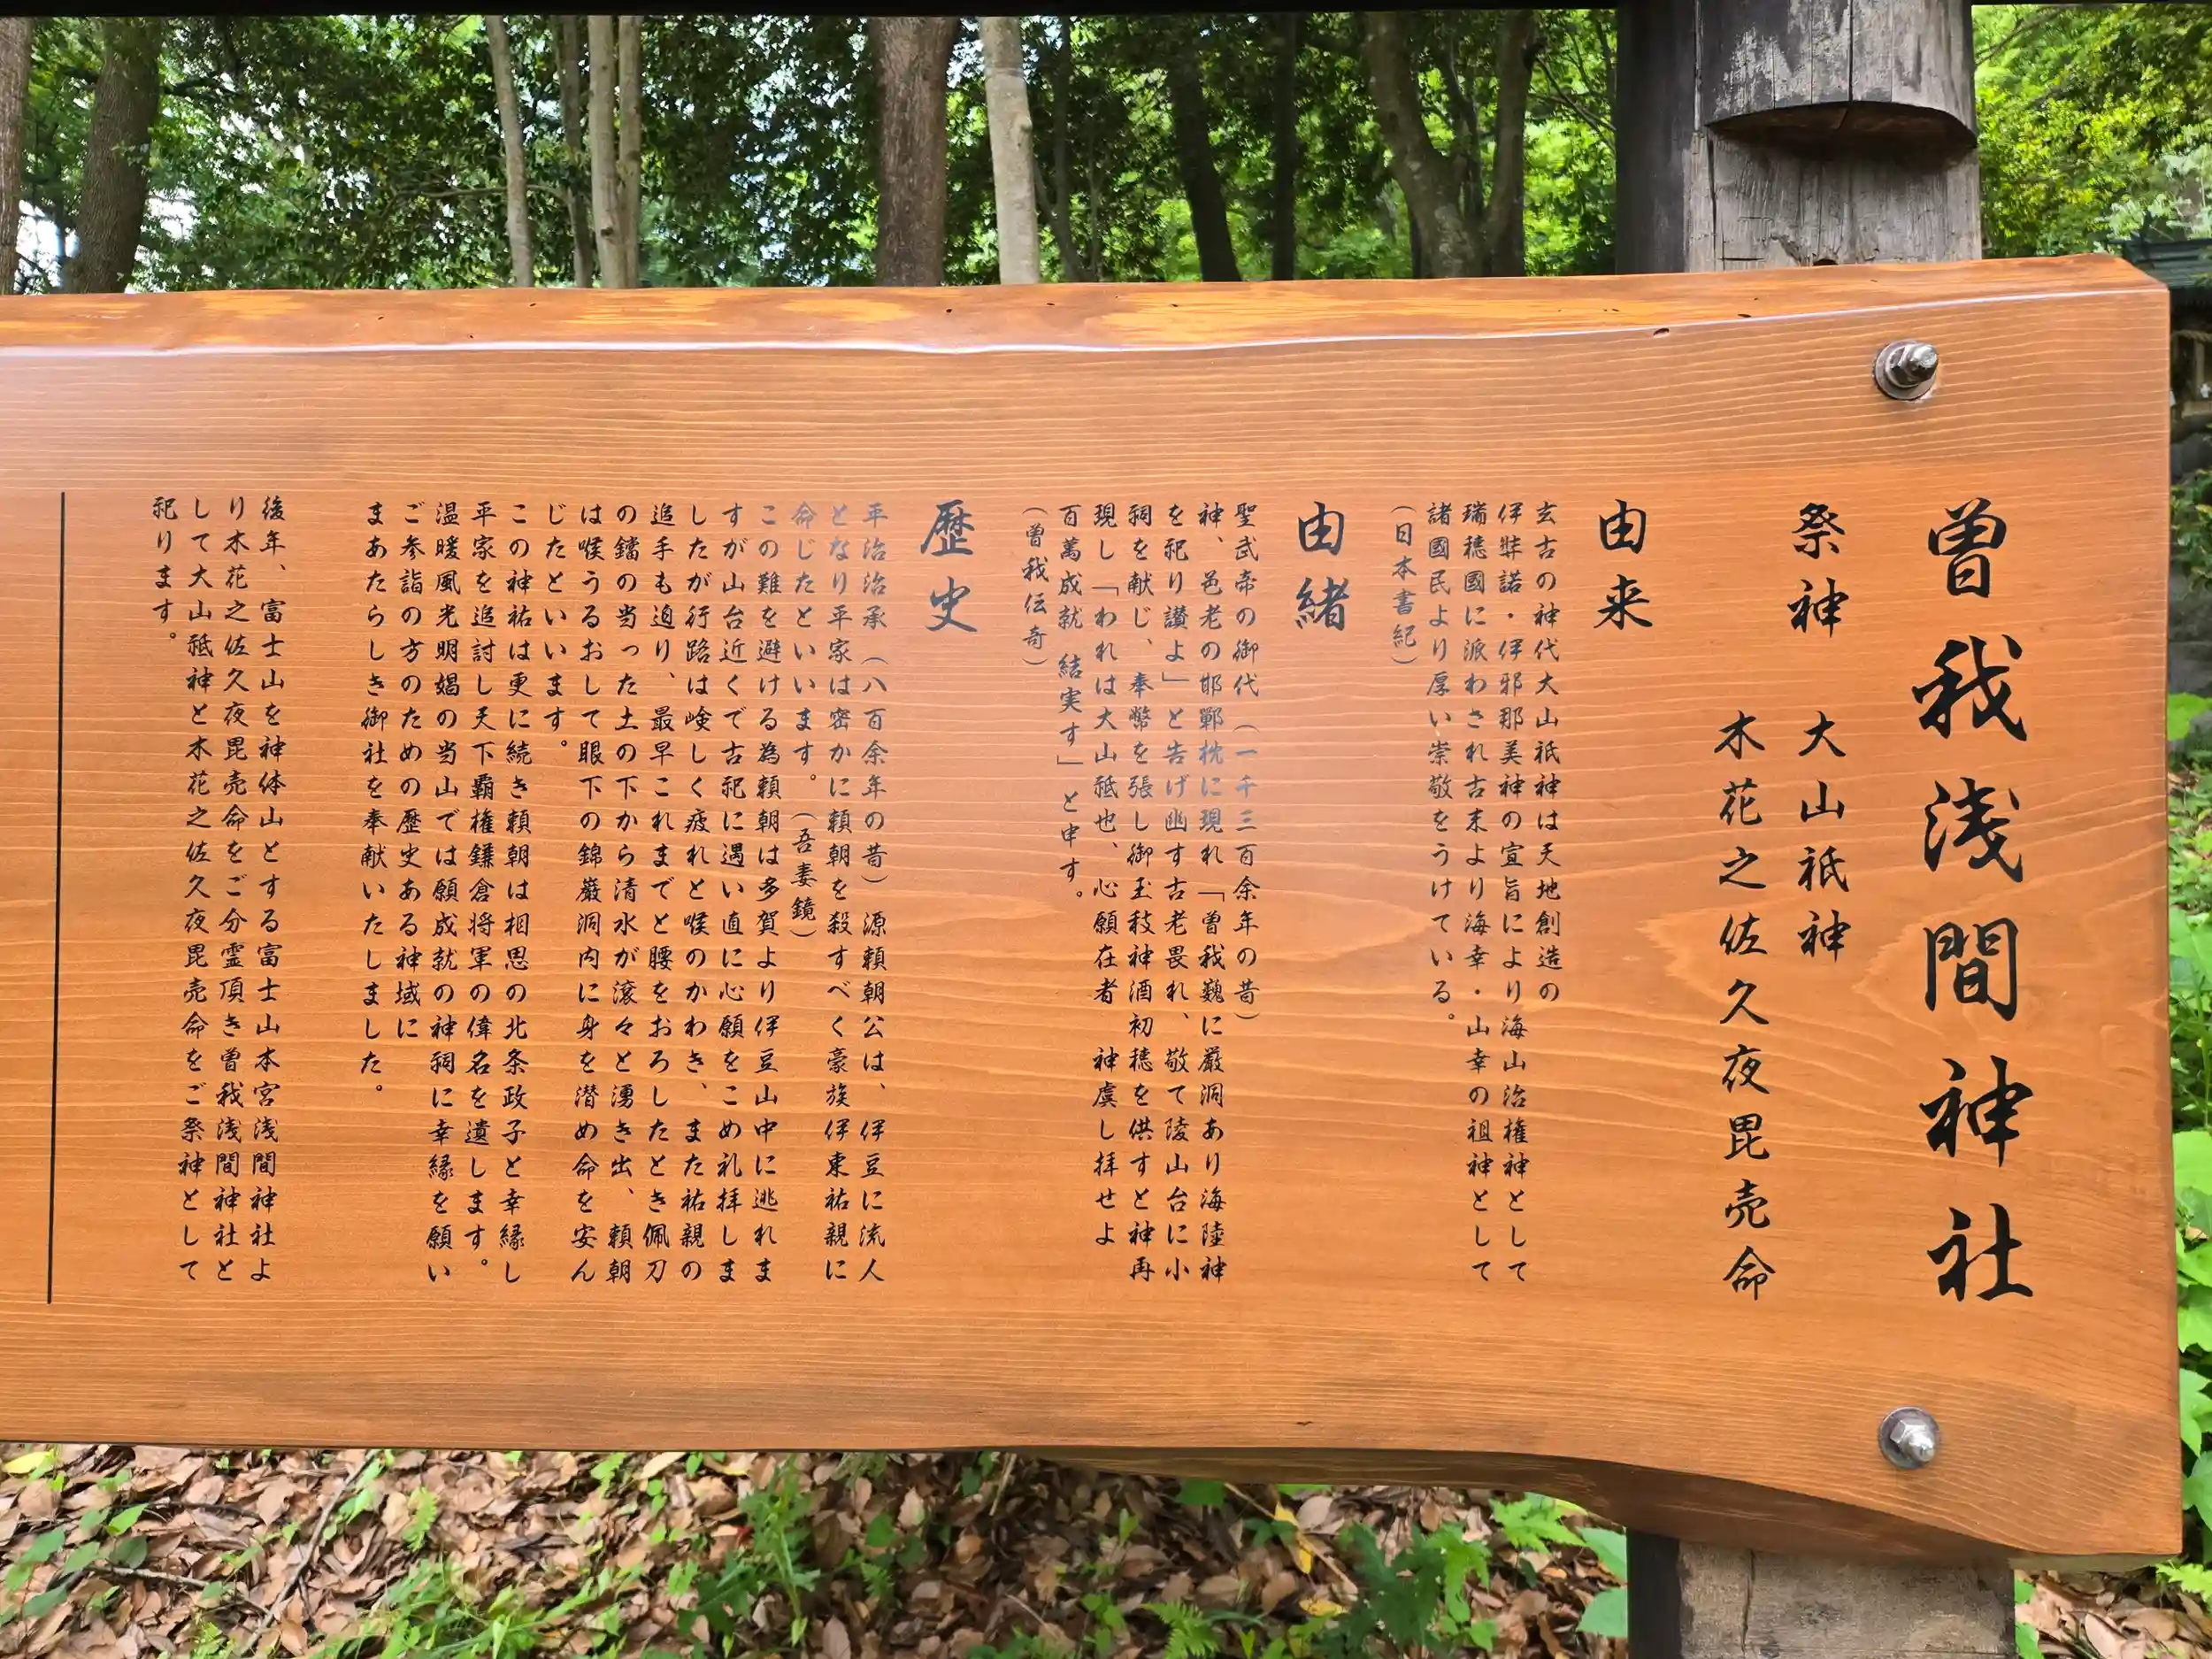 曽我浅間神社
祭神　大山祇神
木花之佐久夜毘売命
由来
玄古の神代大山祇神は天地創造の
伊弉諾・伊邪那美神の宣旨により海山治権神として
瑞穂國に派わされ古来より海幸・山幸の祖神として
諸國民より厚い崇敬をうけている。
（日本書紀）
由緒
聖武帝の御代（一千三百余年の昔）
神、邑老の邯鄲枕に現れ「曽我巍に巌洞あり海陸神
を祀り讃よ」と告げ幽す古老畏れ、敬て陵山台に小
祠を献じ、奉幣を張し御玉秡神酒初穂を供すと神再
現し「われは大山祗也、心願在者　神虞し拝せよ
百萬成就　結実す」と申す。
（曽我伝奇）
歴史
平治治承（八百余年の昔）源頼朝公は、伊豆に流人
となり平家は密かに頼朝を殺すべく豪族　伊東祐親に
命じたといいます。（吾妻鏡）
この難を避ける為頼朝は多賀より伊豆山中に逃れま
すが山台近くで古祀に遇い直に心願をこめ礼拝しま
したが行路は険しく疲れと喉のかわき、また祐親の
追手も迫り、最早これまでと腰をおろしたとき佩刀
の鐺の当った土の下から清水が滾々と湧き出、頼朝
は喉うるおして眼下の錦巌洞内に身を潜め命を安ん
じたといいます。
この神祐は更に続き頼朝は相思の北条政子と幸縁し
平家を追討し天下覇権鎌倉将軍の偉名を遺します。
温暖風光明媚の当山では願成就の神祠に幸縁を願い
ご参詣の方のための歴史ある神域に
まあたらしき御社を奉献いたしました。
後年、富士山を神体山とする富士山本宮浅間神社よ
り木花之佐久夜毘売命をご分霊頂き曽我浅間神社と
して大山祗神と木花之佐久夜毘売命をご祭神として
祀ります。